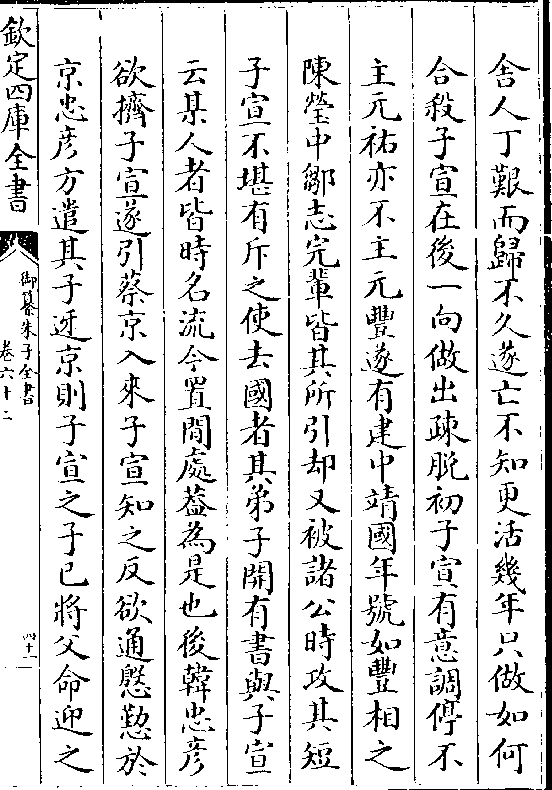 舎人丁艱而歸不久遂亡不知更活幾年只做如何
合殺子宣在後一向做出疎脱初子宣有意調停不
主元祐亦不主元豐遂有建中靖國年號如豐相之
陳瑩中鄒志完輩皆其所引却又被諸公時攻其短
子宣不堪有斥之使去國者其弟子開有書與子宣
云某人者皆時名流今置閒處葢為是也後韓忠彦
欲擠子宣遂引蔡京入來子宣知之反欲通慇懃於
京忠彦方遣其子迓京則子宣之子已將父命迎之
欽定四庫全書
御纂朱子全書
卷六十二
四十一